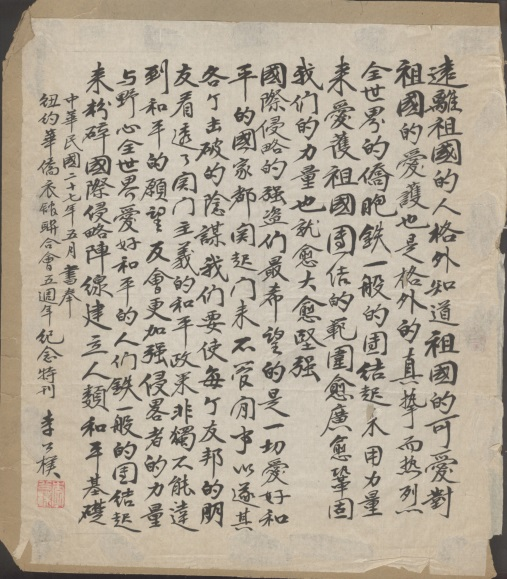 遠離祖國的人格外知道祖國的可愛對
祖國的愛護也是格外的真摯而热烈
全世界的僑胞鉄一般的团结起来用力量
来愛護祖國团结的範圍愈廣愈鞏固
我们的力量也就愈大愈堅强
國際侵略的强盗们最希望的是一切爱好和
平的國家都関起门来不管闲事以遂其
各个击破的陰謀我们要使每个友邦的朋
友看透了関门主義的和平政策非獨不能達
到和平的願望反會更加强侵畧者的力量
与野心全世界爱好和平的人们鉄一般的团结起
来粉碎國際侵略陣線建立人類和平基礎
中華民國二十七年五月書奉
纽约華僑衣舘聯合會五週年纪念特刊 李公樸